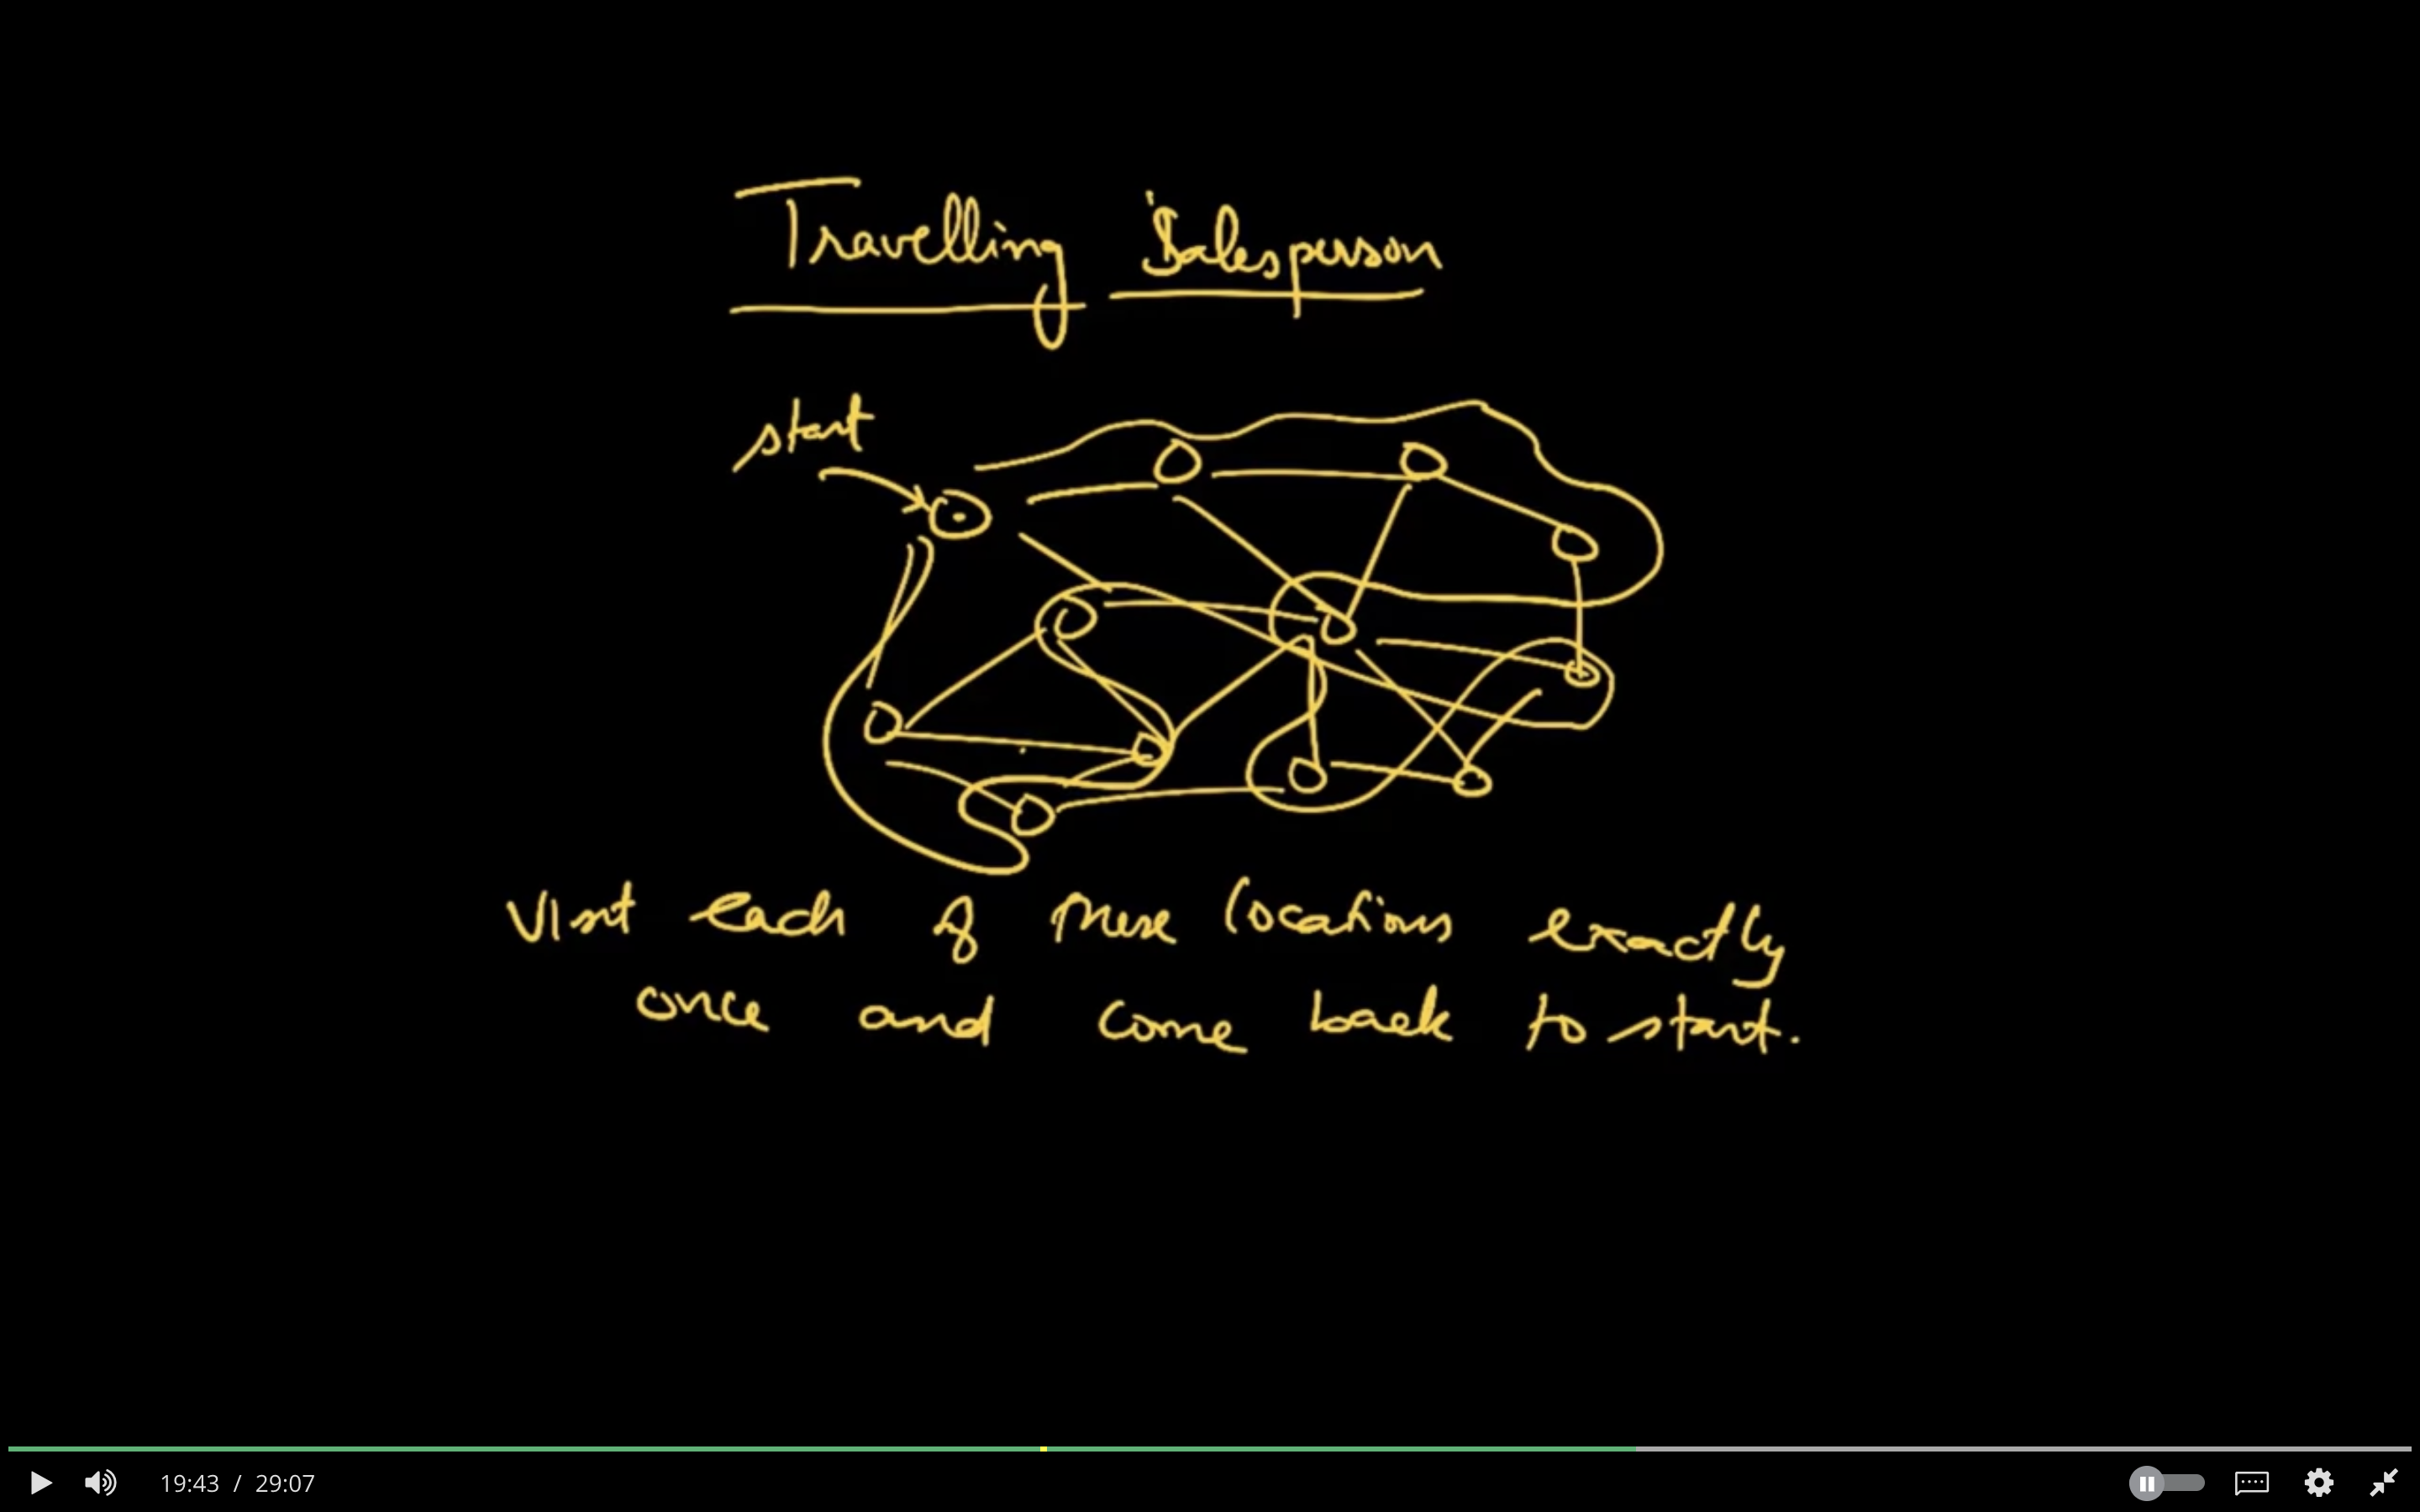 Travelling Salesperson
start
Visit each of these locations exactly
once and come back to start.
19:43 / 29:07